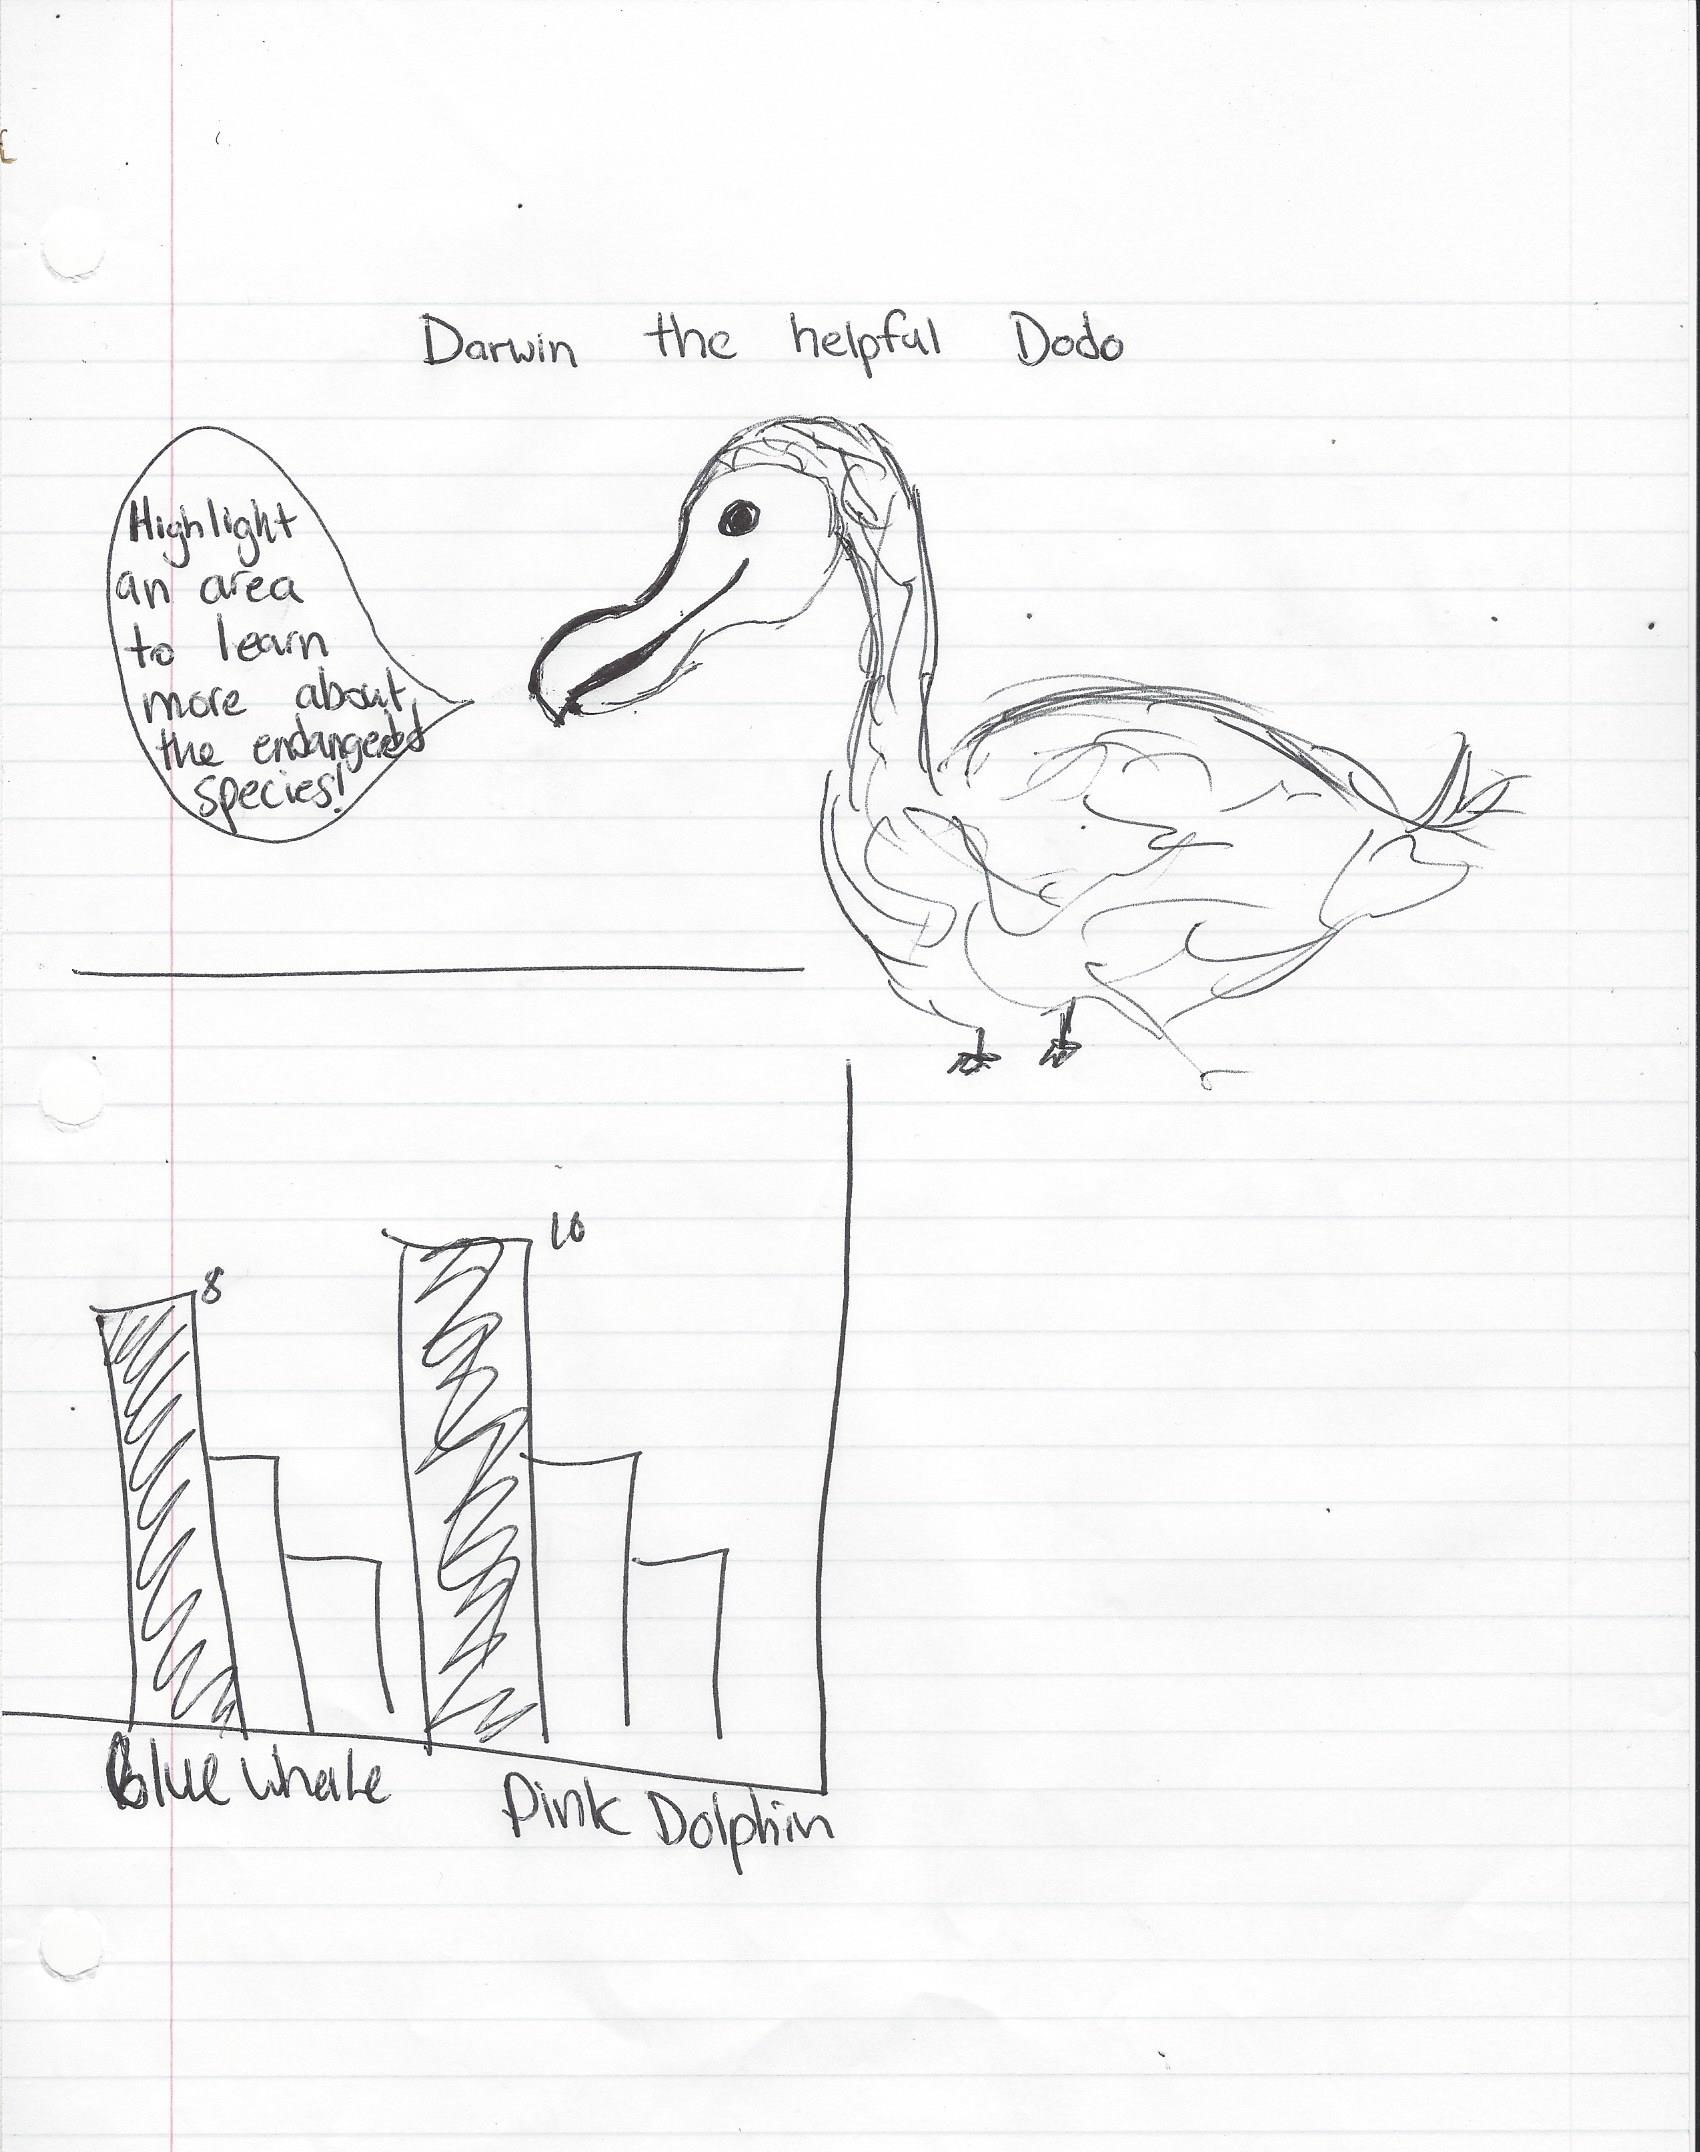 Darwin the helpful Dodo
Highlight
an area
to learn
more about
the endangered
species!
8
10
Blue Whale
Pink Dolphin